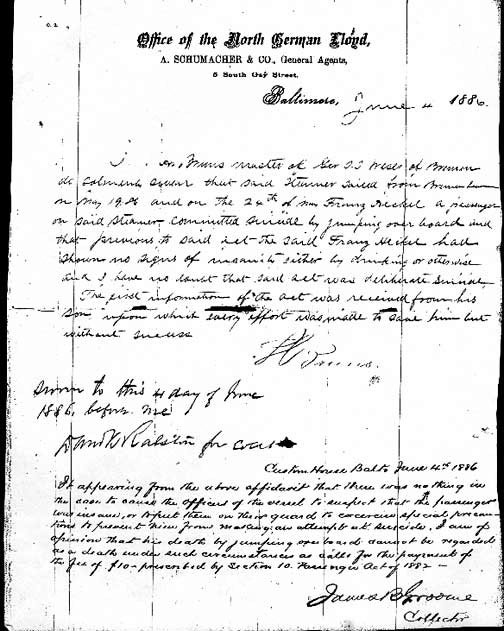 Office of the North German Lloyd,
A. SCHUMACHER & CO., General Agents,
5 South Gay Street.
Baltimore, June 4 1886.
I master of Ger. S.S. Weser of Bremen
do solemnly swear that said steamer sailed from Bremerhaven
on May 19. 86 and on the 24th of May Franz Heckel a passenger
on said steamer committed suicide by jumping over board and
that previous to said act the said Franz Heckel had
shown no signs of insanity either by drinking or otherwise
and I have no doubt that said act was deliberate suicide
The first information of the act was received from his
son upon which every effort was made to save him but
without success
Sworn to this 4 day of June
1886. before me
Ralston for
Custom House Balto June 4th 1886
It appearing from the above affidavit that there was nothing in
the case to cause the officers of the vessel to suspect that the passenger
was insane, or to put them on their guard to exercise special precau-
tions to prevent him from making an attempt at suicide, I am of
opinion that his death by jumping overboard cannot be regarded
as a death under such circumstances as calls for the payment of
the fee of $10 - prescribed by Section 10. Passenger Act of 1882 -
James B Groome
Collector